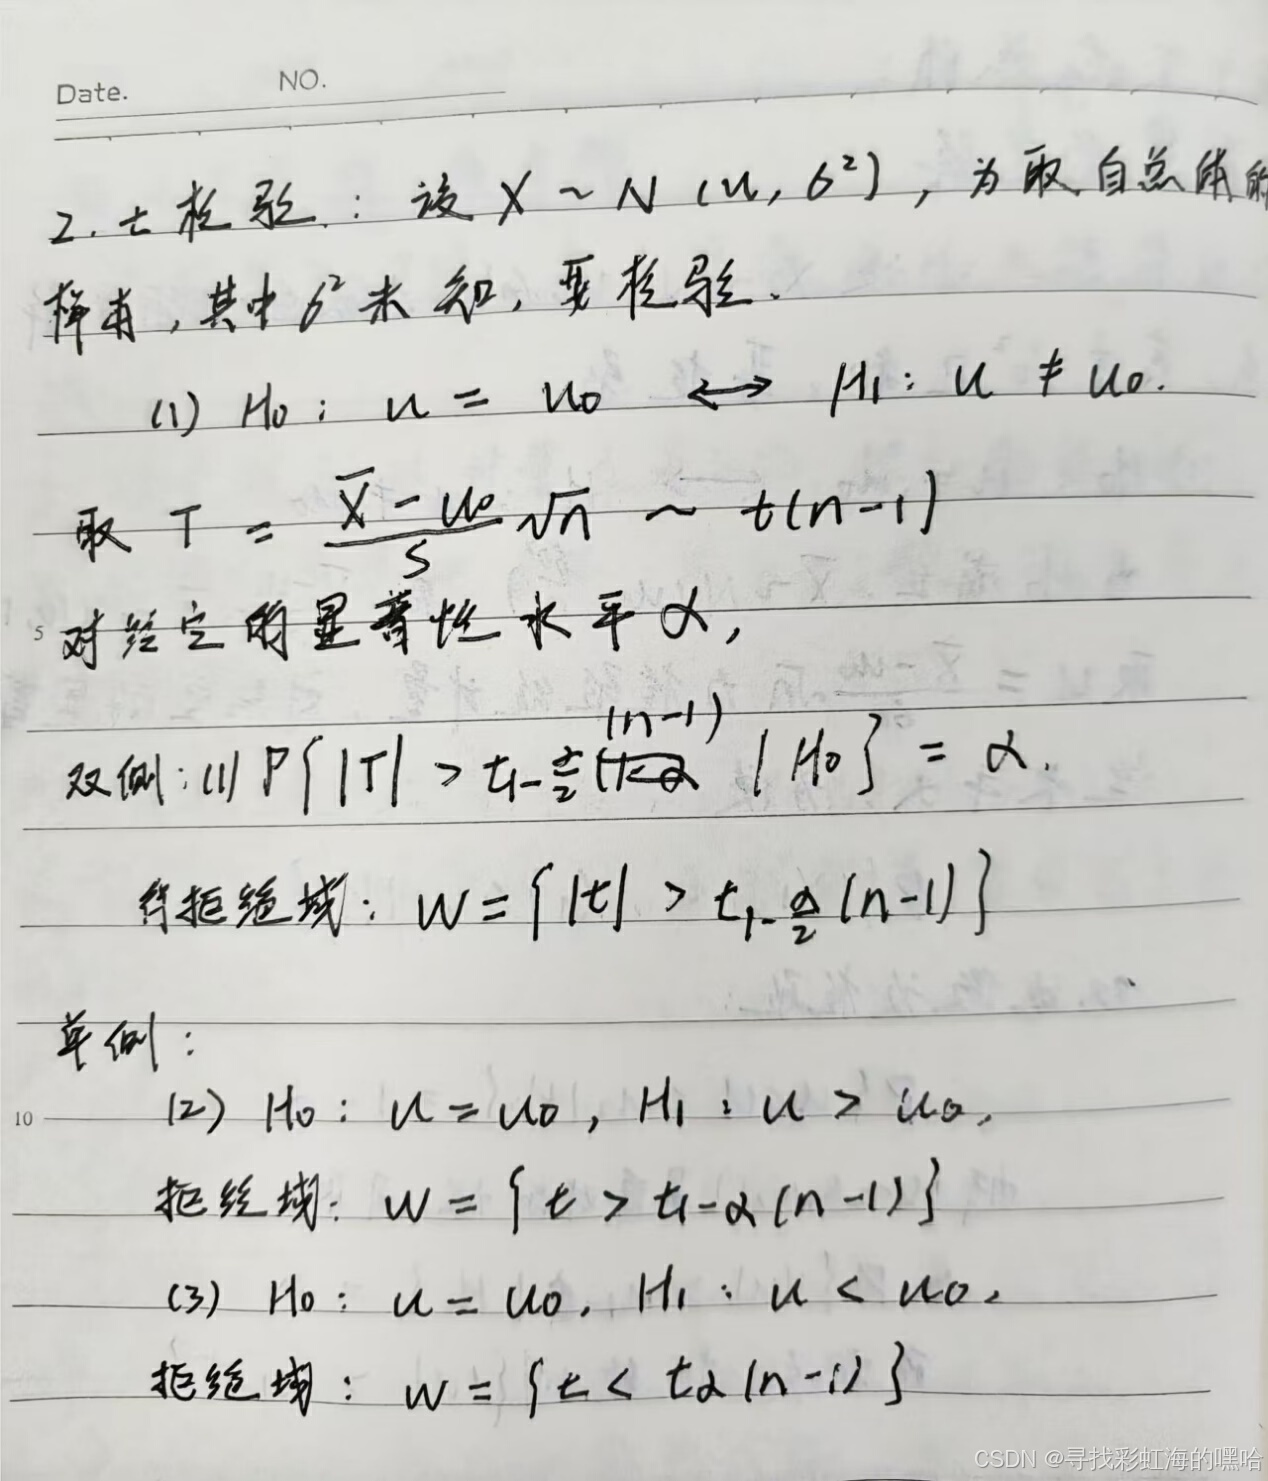 Date. NO.
2. t检验: 设 X ~ N (u, σ²), 为取自总体的
样本, 其中 σ² 未知, 要检验.
(1) H₀: u = u₀ ⟷ H₁: u ≠ u₀.
取 T = (X̄ - u₀)/S √n ~ t(n-1)
5 对给定的显著性水平 α,
双侧: (1) P{ |T| > t₁₋α/₂ (n-1) | H₀ } = α.
得拒绝域: W = { |t| > t₁₋α/₂ (n-1) }
单侧:
10 (2) H₀: u = u₀, H₁: u > u₀.
拒绝域: W = { t > t₁₋α (n-1) }
(3) H₀: u = u₀. H₁: u < u₀.
拒绝域: W = { t < tα (n-1) }
CSDN @寻找彩虹海的嘿哈